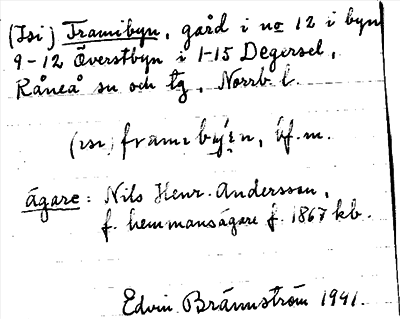 (Isi) Framibyn, gård i no 12 i byn
9-12 Överstbyn i 1-15 Degersel,
Råneå sn och tg, Norrb. l.
(ɪsɪ) framɪbýɛn, bf. m.
ägare: Nils Henr. Andersson,
f. hemmansägare f. 1867 kb.
Edvin Brännström 1941.